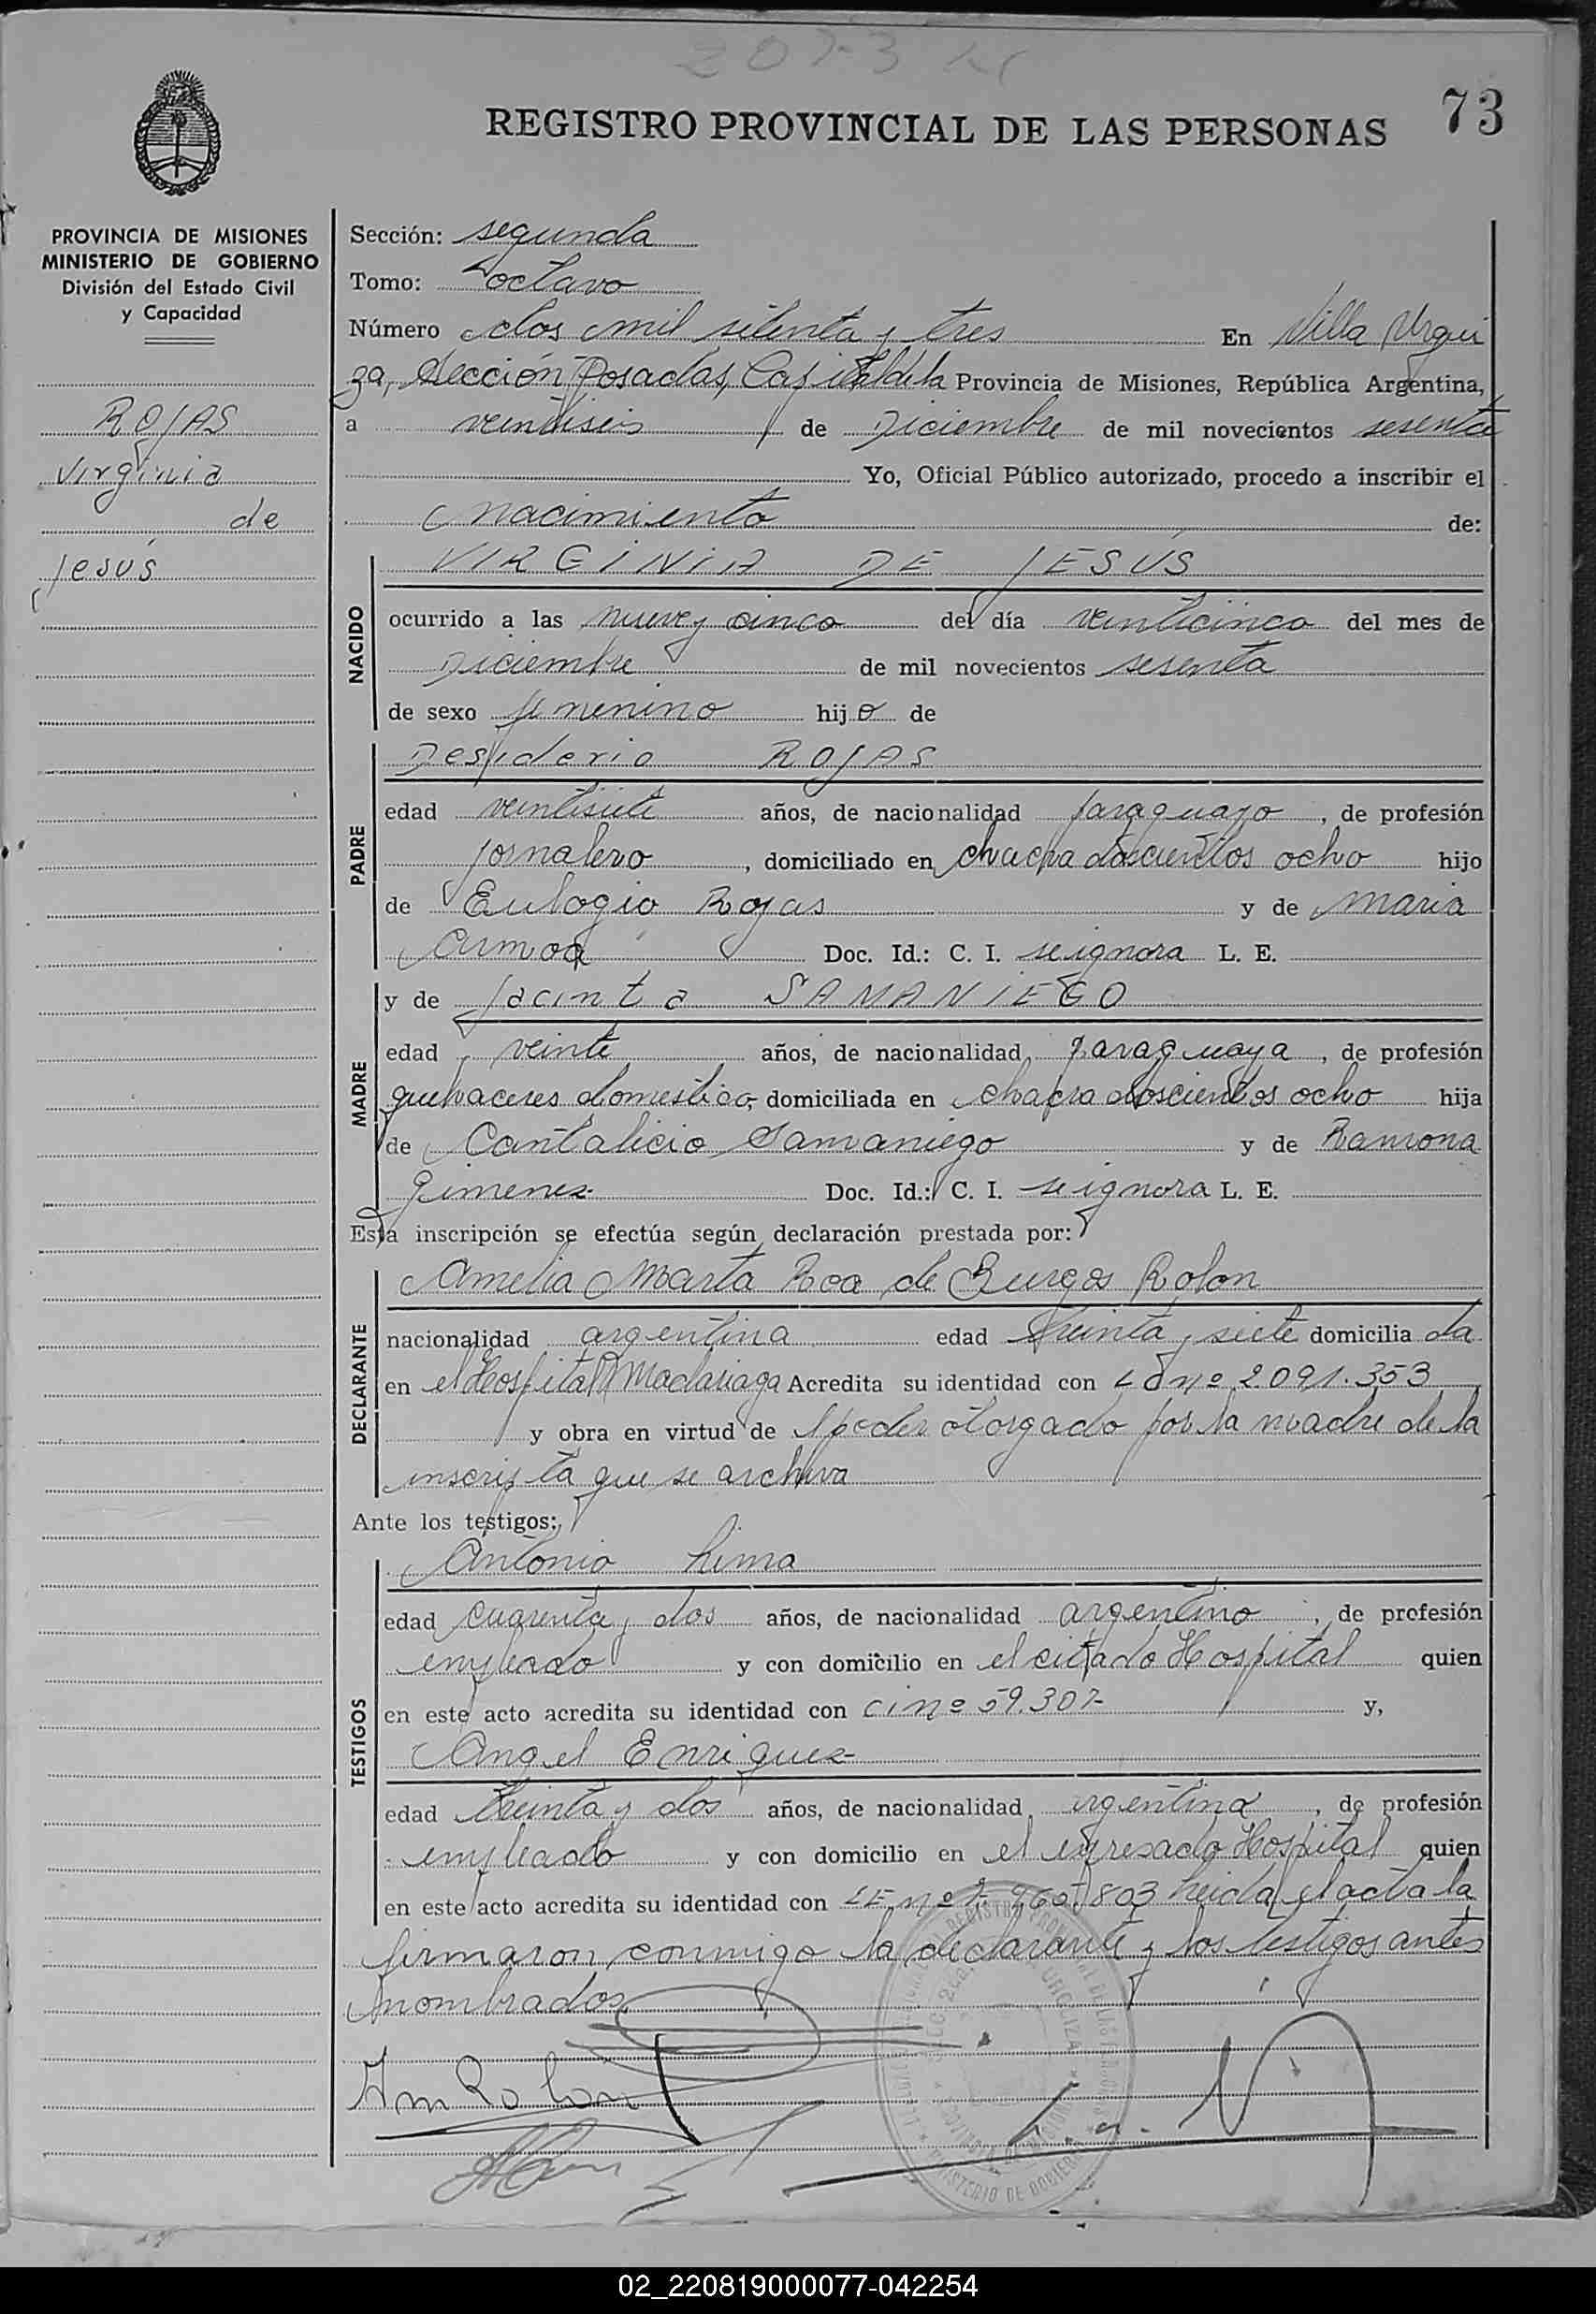 73
REGISTRO PROVINCIAL DE LAS PERSONAS
PROVINCIA DE MISIONES
MINISTERIO DE GOBIERNO
División del Estado Civil
y Capacidad
ROJAS
Virginia
de
Jesús
Sección: segunda
Tomo: octavo
Número dos mil setenta y tres En Villa Urqui
za, Sección Posadas, Capital de la Provincia de Misiones, República Argentina,
a veintiseis de Diciembre de mil novecientos sesenta
Yo, Oficial Público autorizado, procedo a inscribir el
nacimiento de:
NACIDO
VIRGINIA DE JESÚS
ocurrido a las nueve y cinco del día veinticinco del mes de
Diciembre de mil novecientos sesenta
de sexo femenino hijo de
PADRE
Desiderio ROJAS
edad veintisiete años, de nacionalidad paraguayo, de profesión
jornalero, domiciliado en chacra doscientos ocho hijo
de Eulogio Rojas y de Maria
Armoa Doc. Id.: C. I. se ignora L. E.
MADRE
y de Jacinta SAMANIEGO
edad veinte años, de nacionalidad paraguaya, de profesión
quehaceres domestico, domiciliada en chacra doscientos ocho hija
de Cantalicio Samaniego y de Ramona
Gimenez Doc. Id.: C. I. se ignora L. E.
Esta inscripción se efectúa según declaración prestada por:
DECLARANTE
Amelia Marta Roa de Burgos Rolon
nacionalidad argentina edad treinta y siete domicilia da
en el Hospital Madariaga Acredita su identidad con nº 2.091.353
y obra en virtud de poder otorgado por la madre de la
inscripta que se archiva
Ante los testigos:
TESTIGOS
Antonio Lima
edad cuarenta y dos años, de nacionalidad argentino, de profesión
empleado y con domicilio en el citado Hospital quien
en este acto acredita su identidad con CI nº 59.307- y,
Angel Enriquez-
edad treinta y dos años, de nacionalidad argentina, de profesión
empleado y con domicilio en el expresado Hospital quien
en este acto acredita su identidad con LE nº 803 Leida el acta la
firmaron conmigo la declarante y los testigos antes
nombrados
Am Rolon
02_220819000077-042254